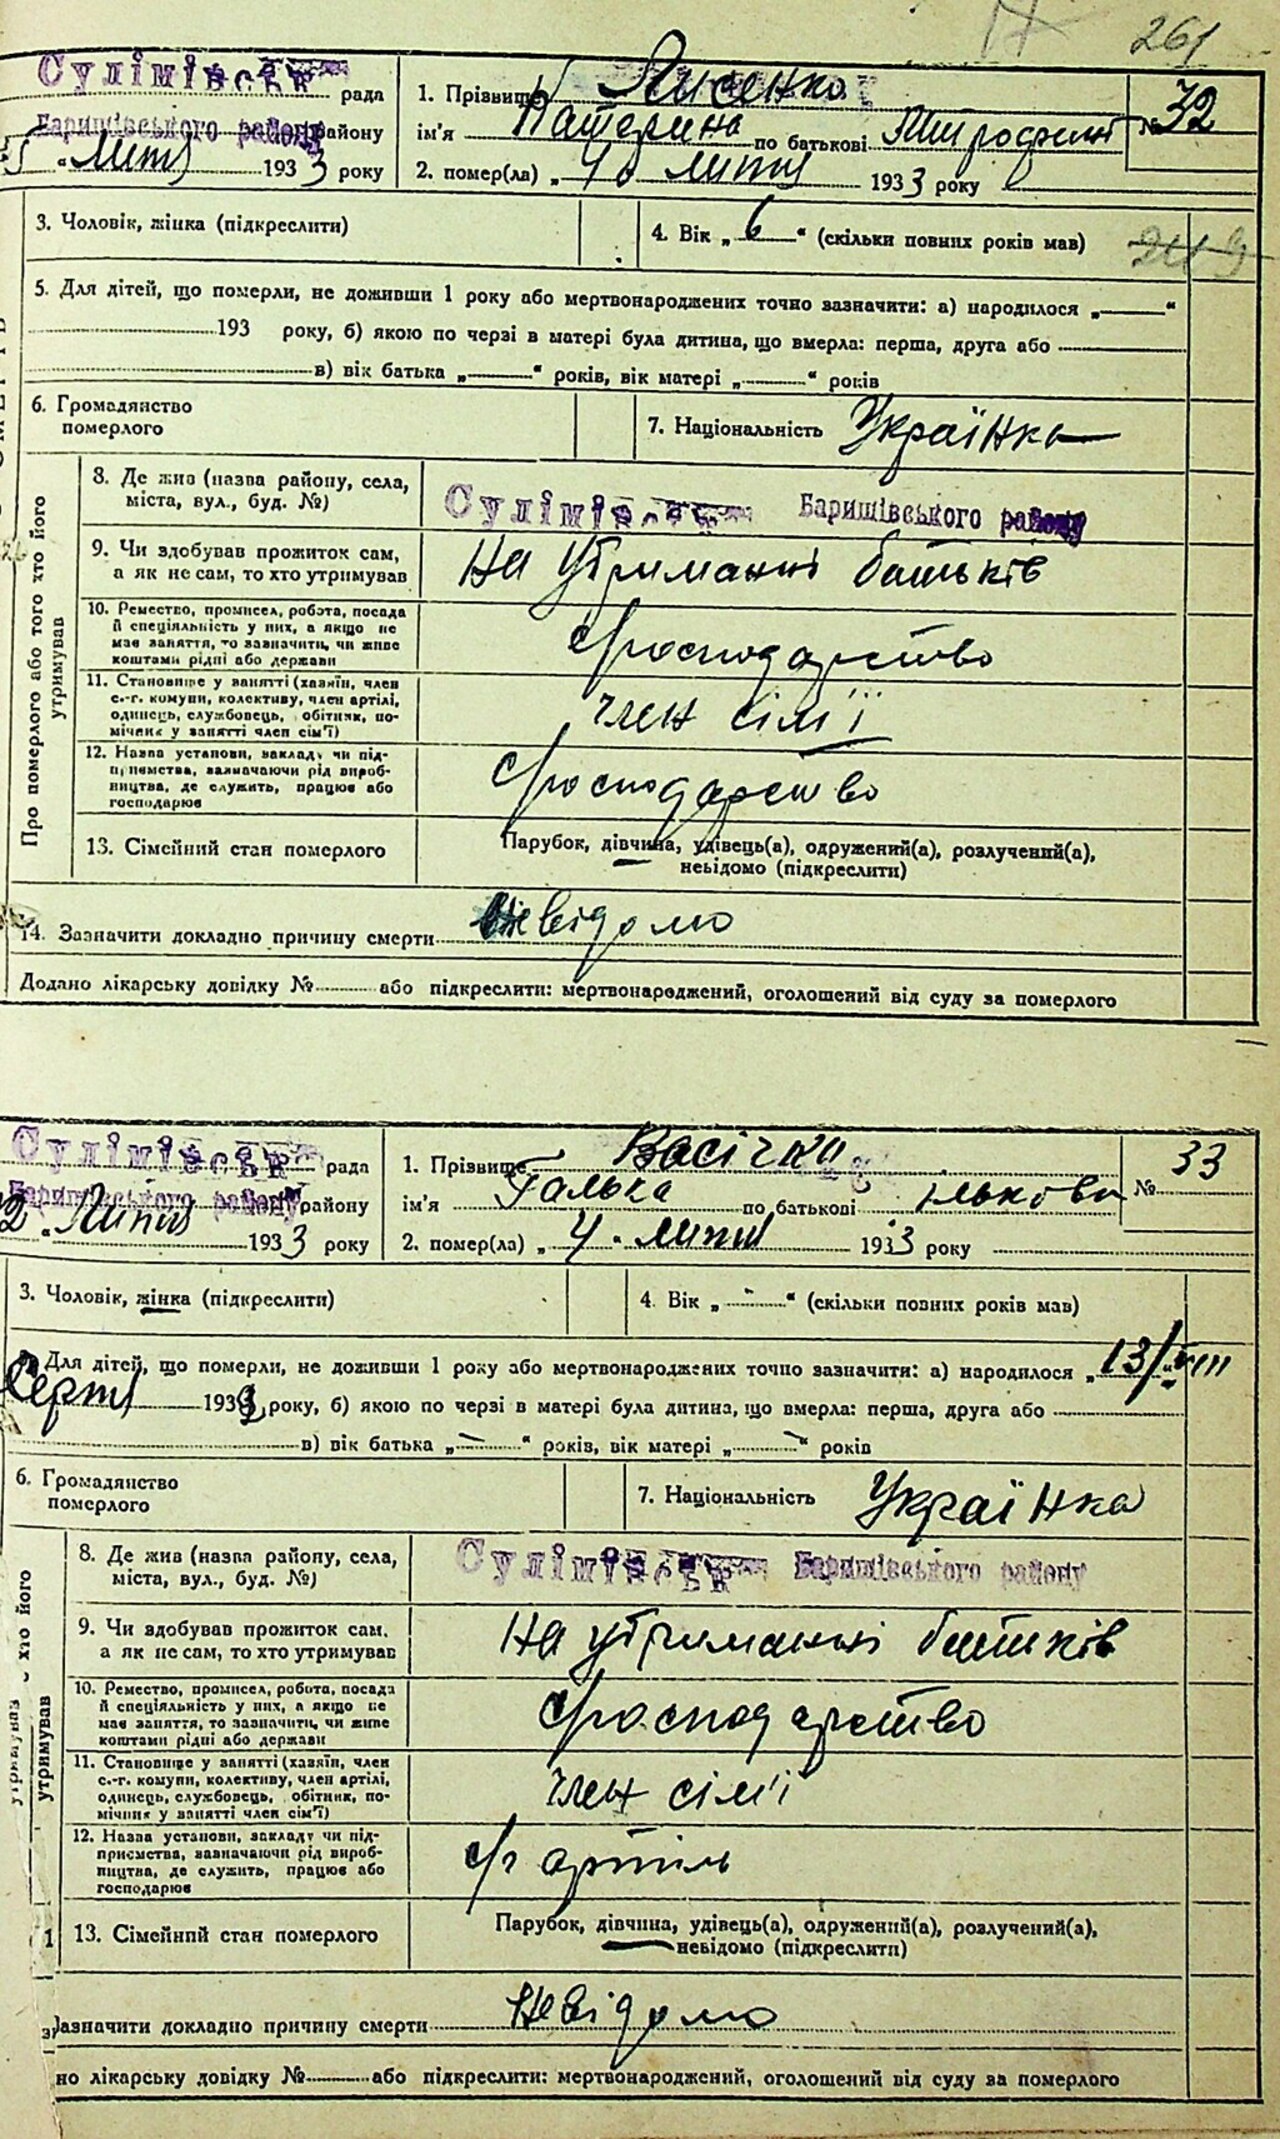 261
Сулімівськ рада
Баришівського району району
5 " Липня 1933 року
1. Прізвище Лисенко
ім'я Катерина по батькові Митрофанів
№ 32
2. помер(ла) „ 4 " липня 1933 року
3. Чоловік, жінка (підкреслити)
4. Вік „ 6 " (скільки повних років мав)
5. Для дітей, що померли, не доживши 1 року або мертвонароджених точно зазначити: а) народилося „ "
193 року, б) якою по черзі в матері була дитина, що вмерла: перша, друга або
в) вік батька „ " років, вік матері „ " років
6. Громадянство
померлого
7. Національність Українка
Про померлого або того хто його
утримував
8. Де жив (назва району, села,
міста, вул., буд. №)
Сулімівськ Баришівського району
9. Чи здобував прожиток сам,
а як не сам, то хто утримував
На утриманні батьків
10. Ремество, промисел, робота, посада
й спеціяльність у них, а якщо не
має заняття, то зазначити, чи живе
коштами рідні або держави
Господарство
11. Становище у занятті (хазяїн, член
с.-г. комуни, колективу, член артілі,
одинець, службовець, обітник, по-
мічник у занятті член сім'ї)
член сім'ї
12. Назва установи, закладу чи під-
приємства, зазначаючи рід вироб-
ництва, де служить, працює або
господарює
Господарство
13. Сімейний стан померлого
Парубок, дівчина, удівець(а), одружений(а), розлучений(а),
невідомо (підкреслити)
14. Зазначити докладно причину смерти невідомо
Додано лікарську довідку № або підкреслити: мертвонароджений, оголошений від суду за померлого
Сулімівськ рада
Баришівського району району
" Липня 1933 року
1. Прізвище Васічка
ім'я Галька по батькові Ількова
№ 33
2. помер(ла) „ 4 " липня 1933 року
3. Чоловік, жінка (підкреслити)
4. Вік „ - " (скільки повних років мав)
Для дітей, що померли, не доживши 1 року або мертвонароджених точно зазначити: а) народилося „ 13/VIII
Серпня 193 року, б) якою по черзі в матері була дитина, що вмерла: перша, друга або
в) вік батька „ - " років, вік матері „ - " років
6. Громадянство
померлого
7. Національність Українка
хто його
утримував
утримував
8. Де жив (назва району, села,
міста, вул., буд. №)
Сулімівськ Баришівського району
9. Чи здобував прожиток сам,
а як не сам, то хто утримував
На утриманні батьків
10. Ремество, промисел, робота, посада
й спеціяльність у них, а якщо не
має заняття, то зазначити, чи живе
коштами рідні або держави
Господарство
11. Становище у занятті (хазяїн, член
с.-г. комуни, колективу, член артілі,
одинець, службовець, обітник, по-
мічник у занятті член сім'ї)
член сім'ї
12. Назва установи, закладу чи під-
приємства, зазначаючи рід вироб-
ництва, де служить, працює або
господарює
с/г артіль
13. Сімейний стан померлого
Парубок, дівчина, удівець(а), одружений(а), розлучений(а),
невідомо (підкреслити)
Зазначити докладно причину смерти Невідомо
но лікарську довідку № або підкреслити: мертвонароджений, оголошений від суду за померлого